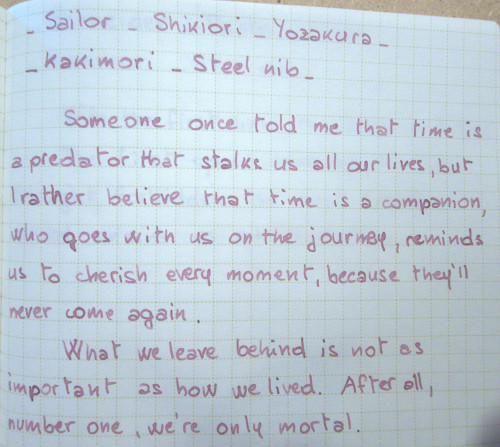 _ Sailor _ Shikiori _ Yozakura _
_ Kakimori _ Steel nib _
Someone once told me that time is
a predator that stalks us all our lives, but
I rather believe that time is a companion,
who goes with us on the journey, reminds
us to cherish every moment, because they'll
never come again.
What we leave behind is not as
important as how we lived. After all,
number one, we're only mortal.